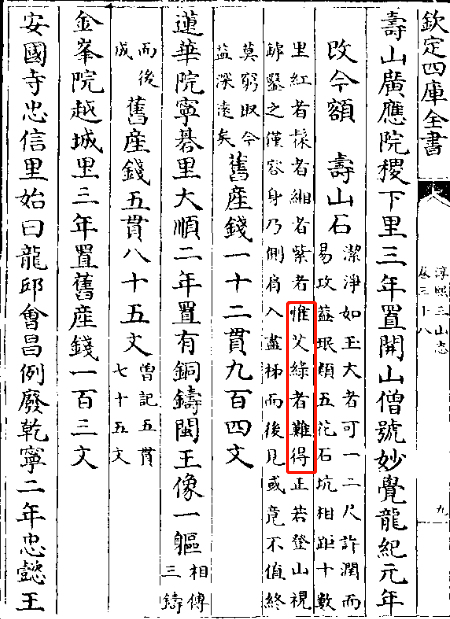 欽定四庫全書
淳熙三山志
卷三十八
九
壽山廣應院稷下里三年置開山僧號妙覺龍紀元年
改今額 壽山石
潔淨如玉大者可一二尺許潤而
易攻蓋珉類五花石坑相距十數
里紅者 者緗者紫者惟艾綠者難得正若登山視
罅鑿之僅容身乃側肩入盡梯而後見或竟不值終
莫窮取今
益深遠矣
舊產錢一十二貫九百四文
蓮華院寧碁里大順二年置有銅鑄閩王像一軀
相傳
三鑄
而後
成
舊產錢五貫八十五文
曾記五貫
七十五文
金峯院越城里三年置舊產錢一百三文
安國寺忠信里始曰龍邱會昌例廢乾寧二年忠懿王